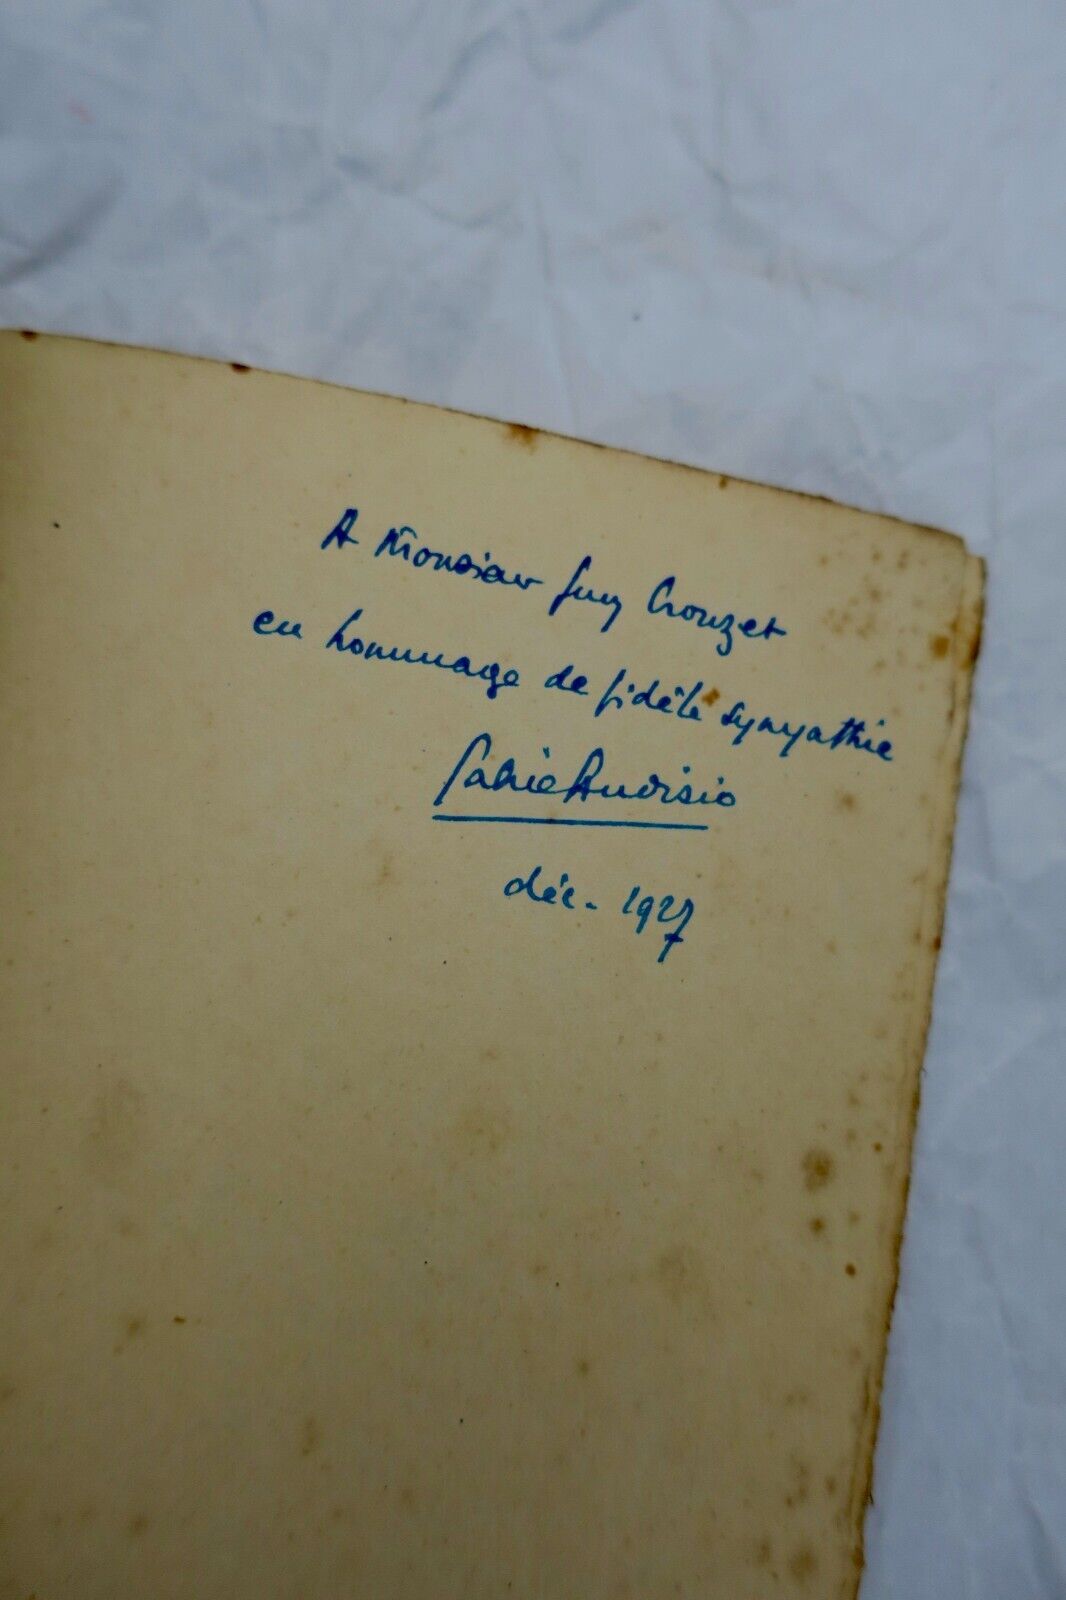 A Monsieur Guy Crouzet
en hommage de fidèle sympathie
Gabriel Audisio
déc. 1927